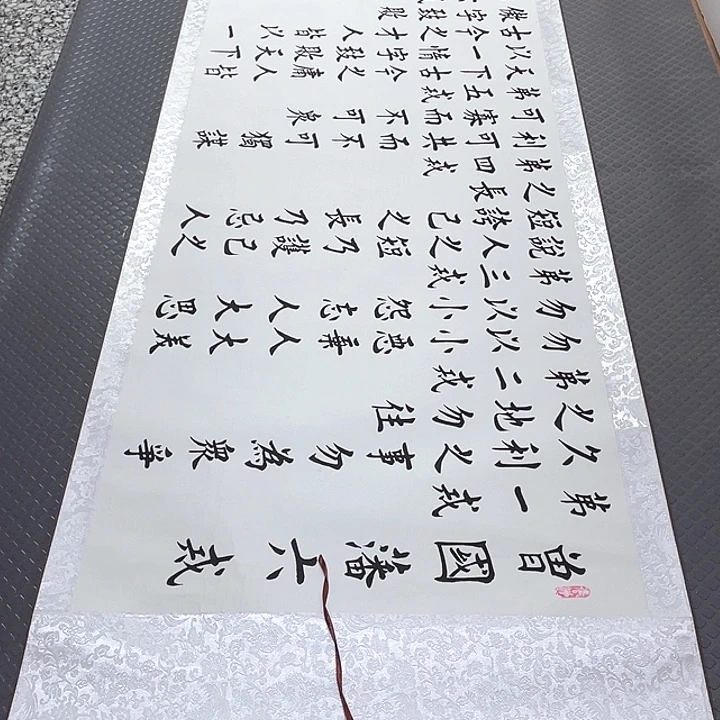 曾國藩六戒
弟一戒
久利之事勿為眾爭
之地勿往
弟二戒
勿以小惡棄人大美
勿以小怨忘人大恩
弟三戒
說人之短乃護己之
短誇己之長乃忌人
之長
弟四戒
利可共而不可獨謀
可寡而不可眾
弟五戒
天下古今之庸人皆
以一惰字致敗天下
古今之才人皆以一
傲字致敗